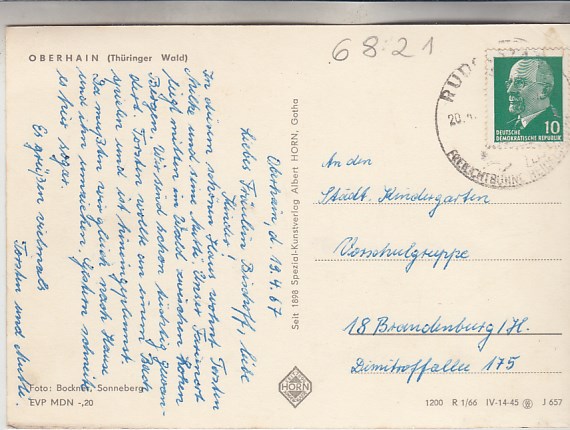 OBERHAIN (Thüringer Wald)
68:21
RUDO
20.
FREILICHTBÜHNE
10
DEUTSCHE
DEMOKRATISCHE REPUBLIK
Oberhain, d. 19.4.67
Liebe Fräulein Bischoff, liebe
Kinder!
In diesem schönen Haus wohnt Torsten
Mulke und seine Mutti. Unser Ferienort
liegt mitten im Wald zwischen hohen
Bergen. Wir sind schon tüchtig gewan-
dert. Torsten wollte an einem Bach
spielen und ist hineingeplumst.
Da mußten wir gleich nach Hause
und ihn umziehen. Gestern schneite
es hier sogar.
Es grüßen vielmals
Torsten und Mutti.
Seit 1898 Spezial-Kunstverlag Albert HORN, Gotha
An den
Städt. Kindergarten
Vorschulgruppe
18 Brandenburg/H.
Dimitroffallee 175
HORN
Foto: Bockner, Sonneberg
EVP MDN -,20
1200 R 1/66 IV-14-45 J 657